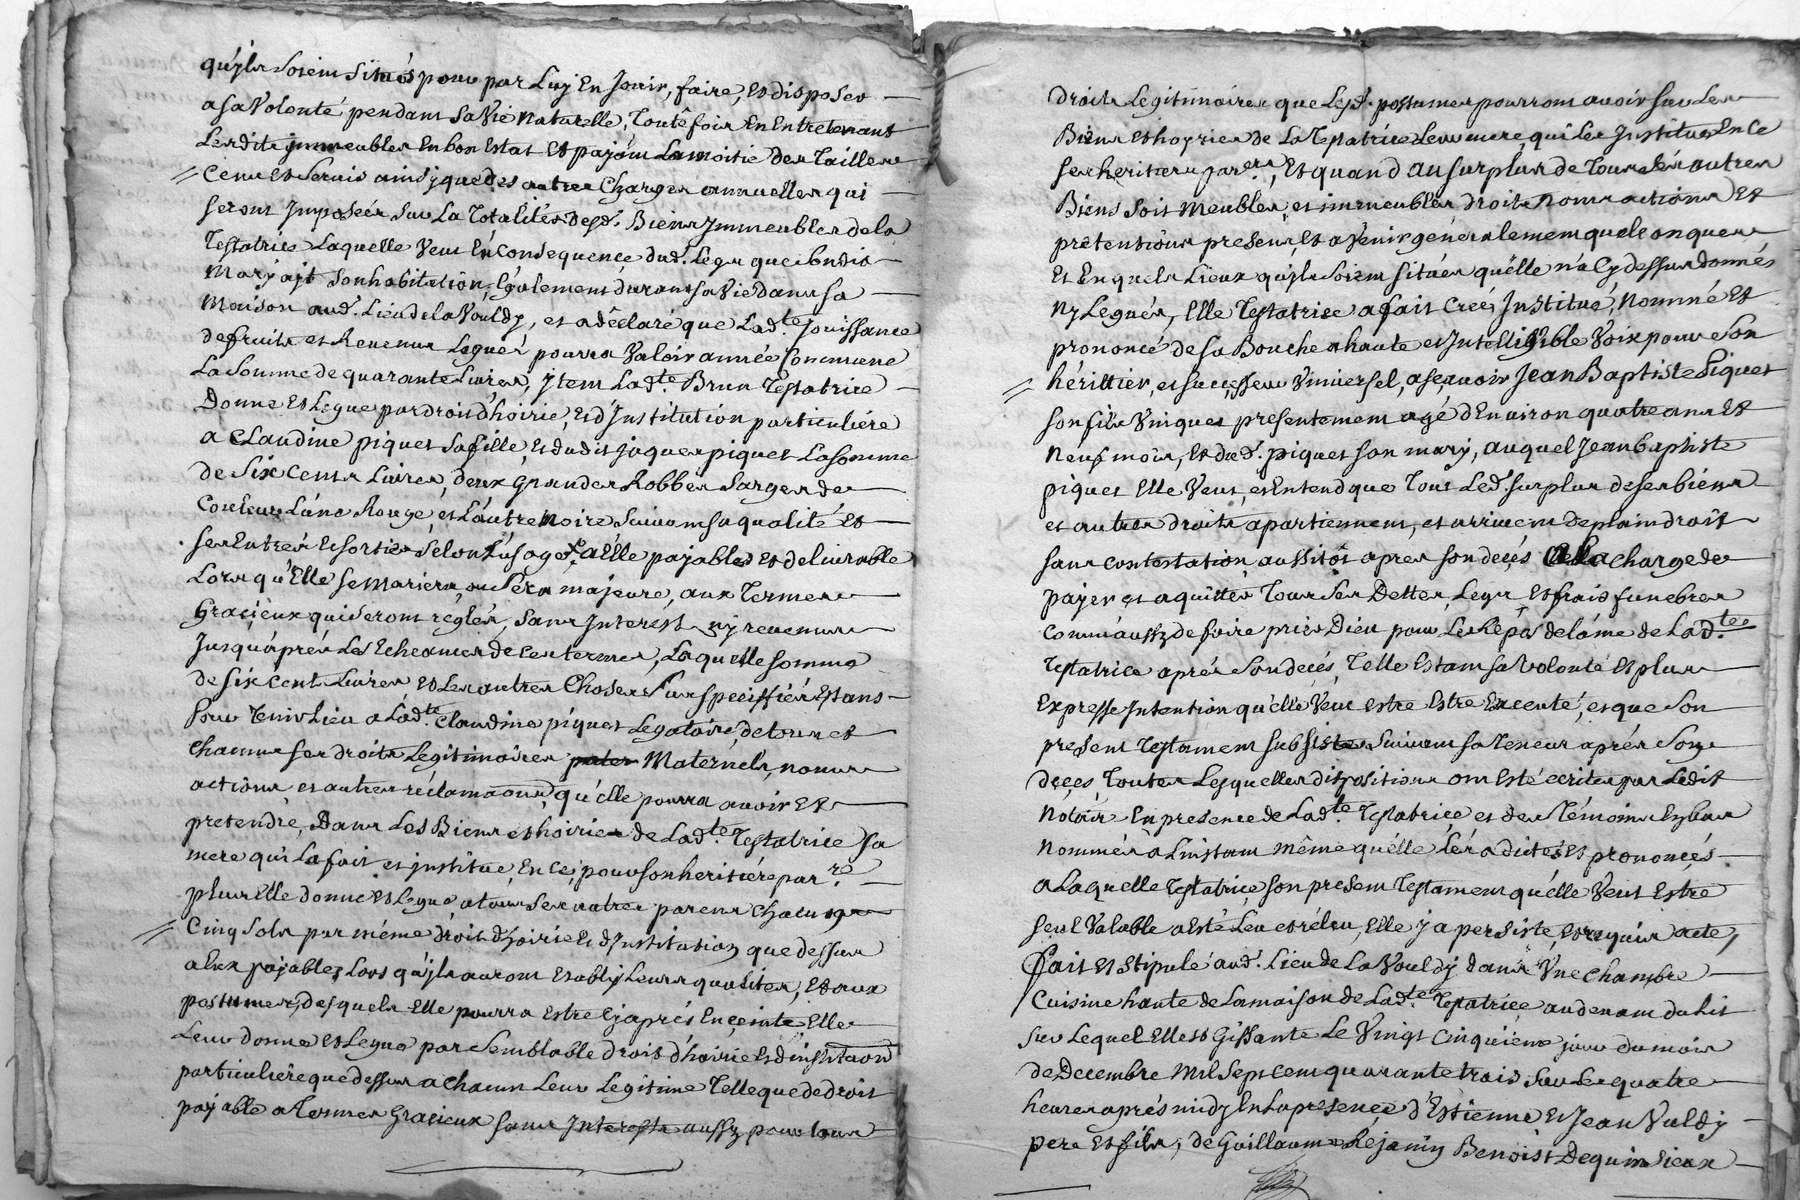 qu'jls soient situés pour par Luy En Jouir, faire, et disposer
a sa Volonté pendant sa Vie naturelle, Toutefois En Entretenant
Lesdits jmmeubles En bon Estat Et pajant La moitié des Tailles
Cens Et servis ainsy que des autres Charges annuelles qui
seront Jmposées sur La Totalités desd. Biens Jmmeubles de la
Testatrice Laquelle Veut En Consequence dud. Legs que sondit
Mary ajt son habitation, Egalement durant sa Vie dans sa
Maison aud. Lieu de la Vouldy, et a déclaré que Lad.te jouissance
de fruits et Revenus Legués pourra Valoir année Commune
La Somme de quarante Livres, jtem Lad.te Brun Testatrice
Donne Et Legue par droit d'hoirie, Et d'Institution particulière
a Claudine piquet sa fille, Et dudit jaques piquet La somme
de Six Cents Livres, deux grandes Robbes sarges de
Couleur L'une Rouge, et L'autre Noire Suivant sa qualité Et
ses Entrés Et sorties selon L'usage, a Elle pajables et delivrable
Lors qu'Elle se Mariera, ou sera majeure, aux Termes
Gracieux qui seront réglés, sans Interest ny revenus
Jusqu'après Les Echeances de Ces termes, Laquelle somme
de six cent Livres et Les autres Choses sus speciffiés Estans
pour Tenir Lieu a Lad.te Claudine piquet Legataire, de tous et
chacuns ses droits Legitimaires Maternels, noms
actions et autres réclamaõns, qu'elle pourra avoir Et
pretendre, Dans Les Biens et hoiries de Lad.te Testatrice sa
mere qui La fait et jnstitue, En Ce, pour son heritière par.re
plus Elle donne Et Legue a tous ses autres parens Chacun
Cinq Sols par même droit d'hoirie Et d'Institution que dessus
a Eux pajables Lors qu'jls auront Etably Leurs qualités, Et aux
postumes, desquels Elle pourra Estre Cj après Enceinte Elle
Leur donne Et Legue par Semblable droit d'hoirie Et d'institaõn
particulière que dessus a chacun Leur Legitime Telle que de droit
pajable a Termes Gracieux sans Interests aussy pour tous
droits Legitimaires que Lesd. postumes pourront avoir sur Les
Biens Et hoyries de La Testatrice Leur mere, qui Les Institue En Ce
ses heritiers par.ers, Et quand au surplus de Tous ses autres
Biens soit meubles, et immeubles droits noms actions Et
prétentions presens, Et a Venir généralement quelconques
Et En quels Lieux qu'jls soient situés qu'elle n'a Cy dessus donnés
Ny Legués, Elle Testatrice a fait Créé, Institué, Nommé Et
prononcé de sa Bouche a haute et Intelligible Voix pour Son
hérittier, et successeur Vniversel, asçavoir Jean Baptiste Piquet
son fils Vnique, presentement agé d'Environ quatre ans Et
Neuf mois, Et dud. piquet son mary, auquel Jean Baptiste
piquet Elle Veut, et Entend que Tous Led. surplus de ses biens
et autres droits apartiennent, et arrivent de plain droit
sans Contestation aussitôt apres son decés a la charge de
payer et aquitter Tous ses Dettes, Legs Et frais funebres
Comm'aussy de faire prier Dieu pour Le Repos de l'ame de Lad.te
Testatrice après son decés, Telle Estant sa Volonté Et plus
Expresse Intention qu'elle Veut Estre Estre Executé, et que son
present Testament subsiste Suivant sa Teneur après son
decés, Toutes Lesquelles dispositions ont Esté écrites par Ledit
Notaire En presence de Lad.te Testatrice et des Témoins En bas
Nommés a L'instant même qu'elle Les a dictés Et prononcés.
a Laquelle Testatrice, son present Testament qu'elle Veut Estre
seul Valable a Esté Leu et réleu, Elle j a persisté, Et requis acte,
fait et stipulé aud. Lieu de La Vouldy dans Vne chambre
Cuisine haute de La maison de Lad.te Testatrice au devant du Lit
sur Lequel Elle Est Gissante Le Vingt Cinquiême jour du mois
de Decembre Mil Sept cent quarante trois sur Les quatre
heures après midy En La presence d'Estienne Et Jean Vuldy
pere Et fils, de Guillaume Rejaniy Benoist Dequinsieux